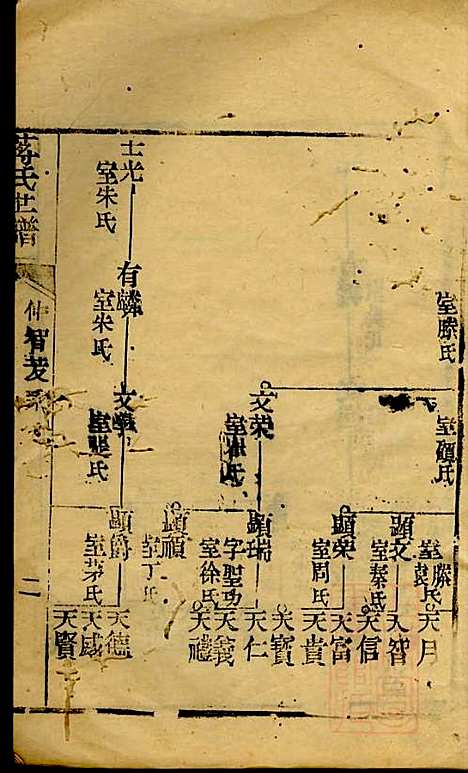 室滕氏
室顧氏
室滕氏
袁氏
天月
顯文
室秦氏
天智
天信
顯榮
室周氏
天富
天貴
天寶
文榮
室崔氏
顯瑞
字聖功
室徐氏
天仁
天義
天禮
顯禎
室丁氏
士光
室朱氏
有麟
室朱氏
文學
顯爵
室茅氏
天德
天咸
天賢
蔣氏世譜
仲智
二